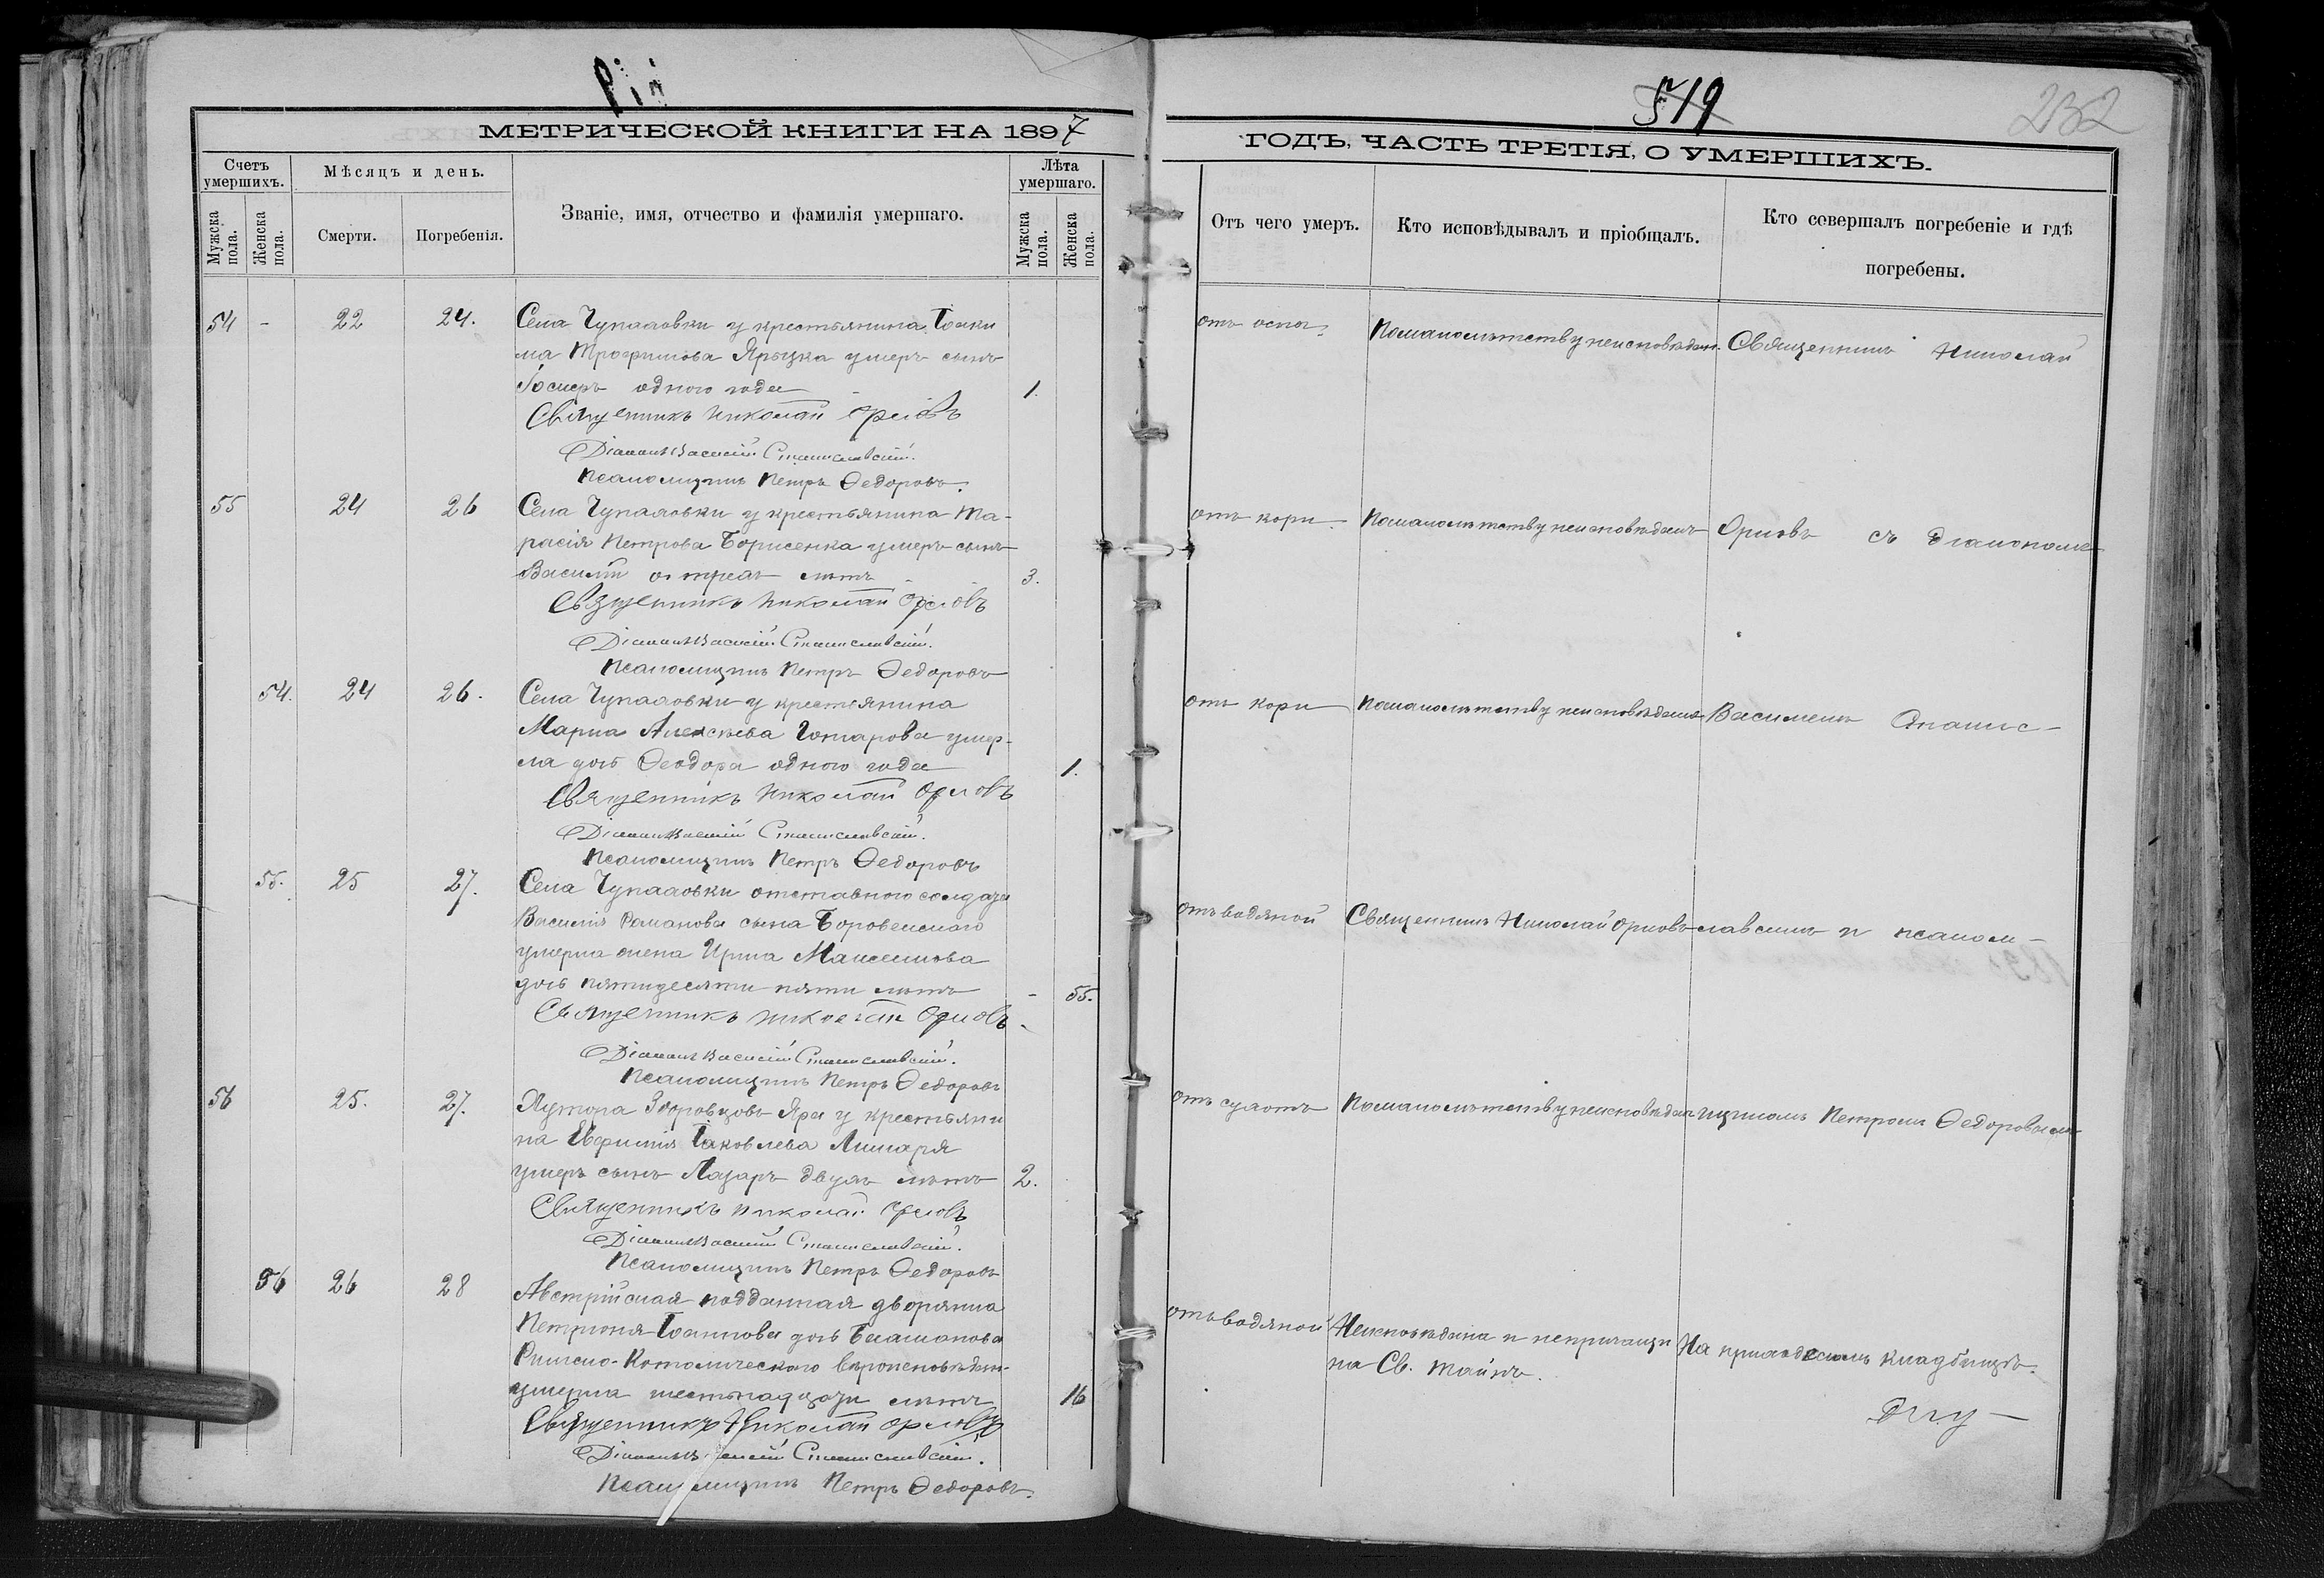 719
232
МЕТРИЧЕСКОЙ КНИГИ НА 1897
ГОДЪ, ЧАСТЬ ТРЕТІЯ, О УМЕРШИХЪ.
Счетъ умершихъ.
Мѣсяцъ и день.
Званіе, имя, отчество и фамилія умершаго.
Лѣта умершаго.
Мужска пола.
Женска пола.
Смерти.
Погребенія.
Мужска пола.
Женска пола.
Отъ чего умеръ.
Кто исповѣдывалъ и пріобщалъ.
Кто совершалъ погребеніе и гдѣ
погребены.
54 - 22 24. Села Чупаховки у крестьянина Іоаки
ма Трофимова Ярыжка умеръ сынъ
одного года 1.
Священникъ Николай Орловъ
Діаконъ Василій Станиславскій.
Псаломщикъ Петръ Ѳедоровъ.
отъ оспы Помалолѣтству неисповѣданъ. Священникъ Николай
55 24 26 Села Чупаховки у крестьянина Та-
расія Петрова Борисенка умеръ сынъ
Василій трехъ лѣтъ 3.
Священникъ Николай Орловъ
Діаконъ Василій Станиславскій.
Псаломщикъ Петръ Ѳедоровъ
отъ кори Помалолѣтству неисповѣданъ Орловъ съ діакономъ
54. 24 26. Села Чупаховки у крестьянина
Марка Алексѣева Гончарова умер-
ла дочь Ѳеодора одного года 1.
Священникъ Николай Орловъ
Діаконъ Василій Станиславскій.
Псаломщикъ Петръ Ѳедоровъ
отъ кори Помалолѣтству неисповѣдана Василіемъ Станис-
55. 25 27. Села Чупаховки отставного солдата
Василія Романова сына Боровенскаго
умерла жена Ирина Максимова
дочь пятидесяти пяти лѣтъ - 55.
Священникъ Николай Орловъ
Діаконъ Василій Станиславскій.
Псаломщикъ Петръ Ѳедоровъ
отъ водяной Священникъ Николай Орловъ лавскимъ и псалом-
56 25. 27. Хутора Яра у крестьяни
на Евфимія Іаковлева Лимаря
умеръ сынъ Лазарь двухъ лѣтъ 2.
Священникъ Николай Орловъ
Діаконъ Василій Станиславскій.
Псаломщикъ Петръ Ѳедоровъ
отъ сухотъ Помалолѣтству неисповѣдан щикомъ Петромъ Ѳедоровымъ
56 26 28 Австрійская подданная дворянка
Петронія Іоаннова дочь
Римско-Католическаго вѣроисповѣдан-
умерла шестьнадцати лѣтъ 16
Священникъ Николай Орловъ
Діаконъ Василій Станиславскій.
Псаломщикъ Петръ Ѳедоровъ.
отъ водяной Неисповѣдана и непричаще
на Св. Тайнъ.
На приходскомъ кладбищѣ.